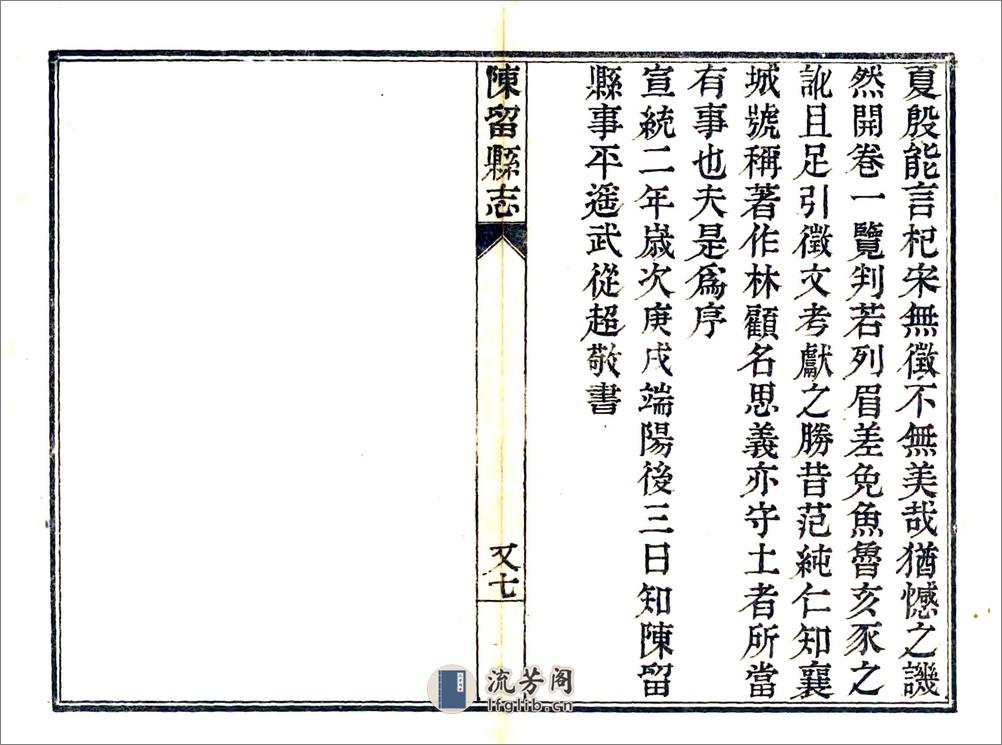 夏殷能言杞宋無徵不無美哉猶憾之譏
然開卷一覽判若列眉差免魚魯亥豕之
訛且足引徵文考獻之勝昔范純仁知襄
城號稱著作林顧名思義亦守土者所當
有事也夫是為序
宣統二年歲次庚戌端陽後三日知陳留
縣事平遥武從超敬書
陳留縣志
又七
流芳阁
lfglib.cn